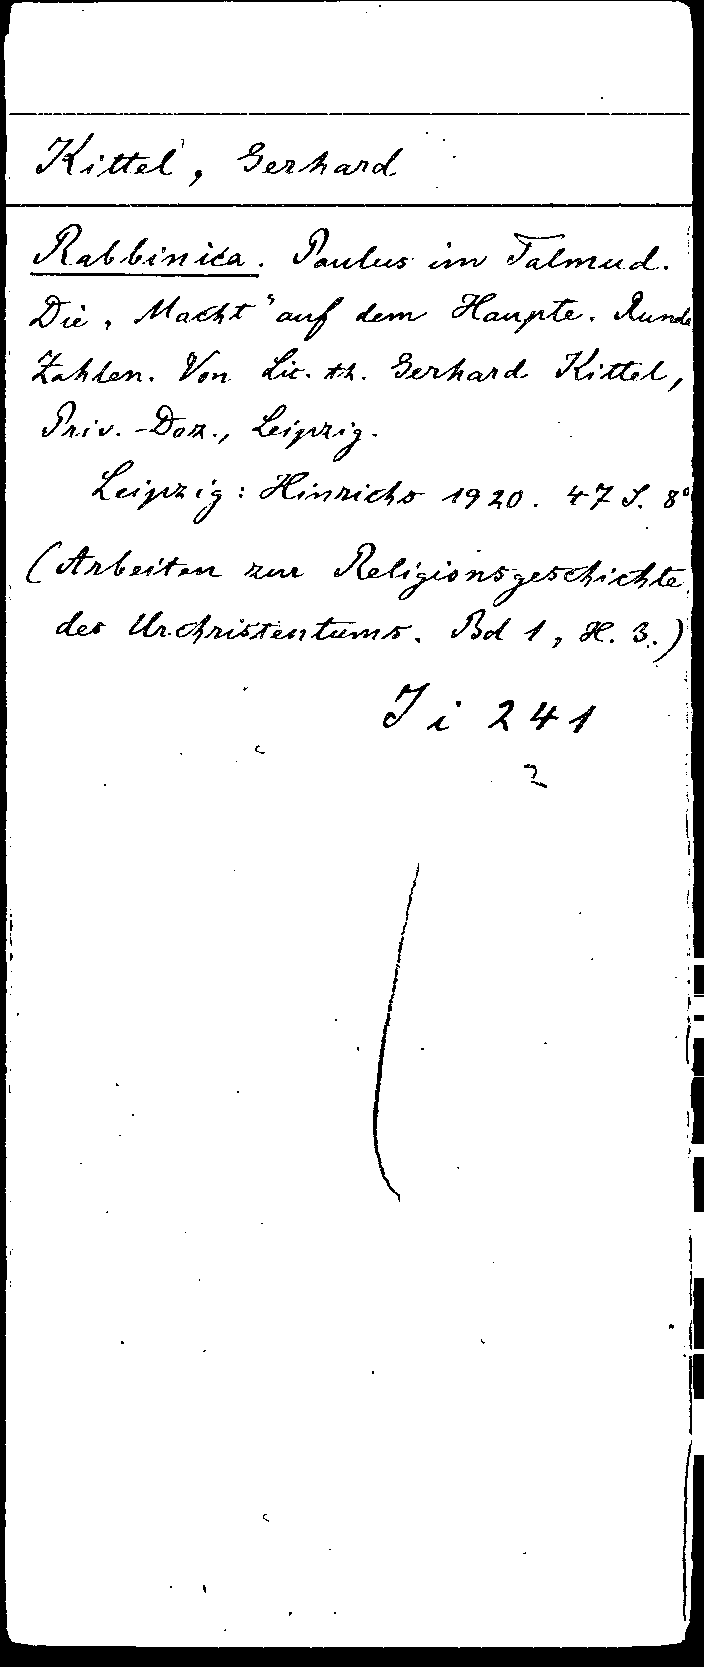 Kittel, Gerhard
Rabbinica. Paulus im Talmud.
Die „Macht“ auf dem Haupte. Runde
Zahlen. Von Lic. th. Gerhard Kittel,
Priv.-Doz., Leipzig.
Leipzig: Hinrichs 1920. 47 S. 8°
(Arbeiten zur Religionsgeschichte
des Urchristentums. Bd 1, H. 3.)
I i 241
2